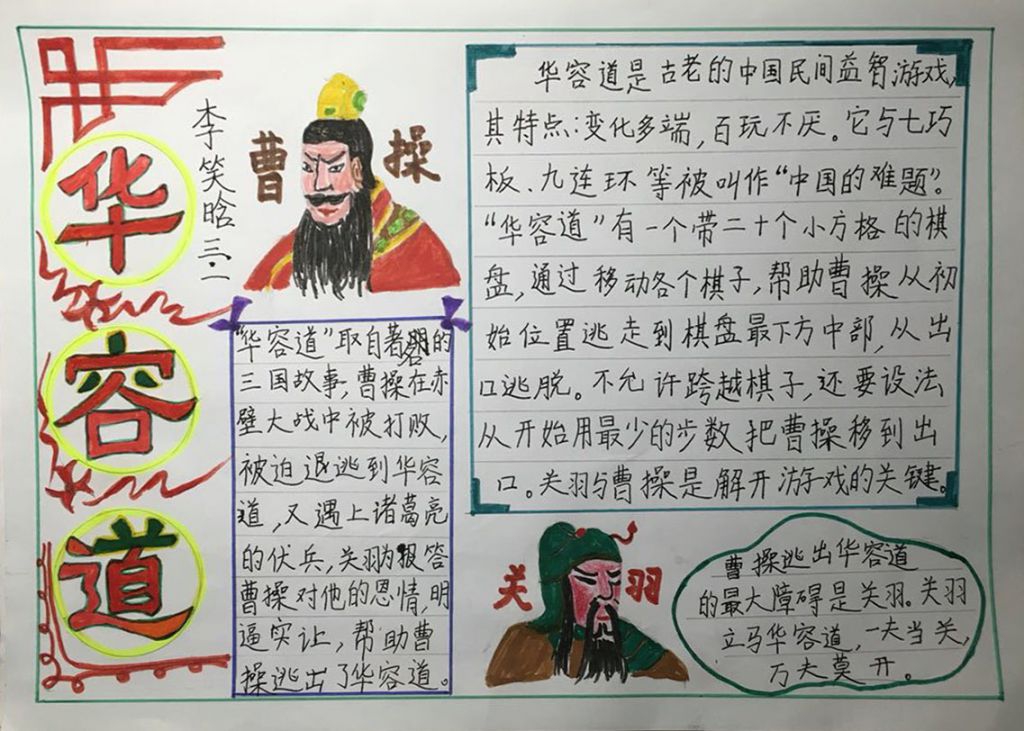 华
容
道
李笑晗 三.二
曹操
华容道是古老的中国民间益智游戏,
其特点:变化多端,百玩不厌。它与七巧
板、九连环等被叫作“中国的难题”。
“华容道”有一个带二十个小方格的棋
盘,通过移动各个棋子,帮助曹操从初
始位置逃走到棋盘最下方中部,从出
口逃脱。不允许跨越棋子,还要设法
从开始用最少的步数把曹操移到出
口。关羽与曹操是解开游戏的关键。
“华容道”取自著名的
三国故事,曹操在赤
壁大战中被打败,
被迫退逃到华容
道,又遇上诸葛亮
的伏兵,关羽为报答
曹操对他的恩情,明
逼实让,帮助曹
操逃出了华容道。
关羽
曹操逃出华容道
的最大障碍是关羽。关羽
立马华容道,一夫当关,
万夫莫开。